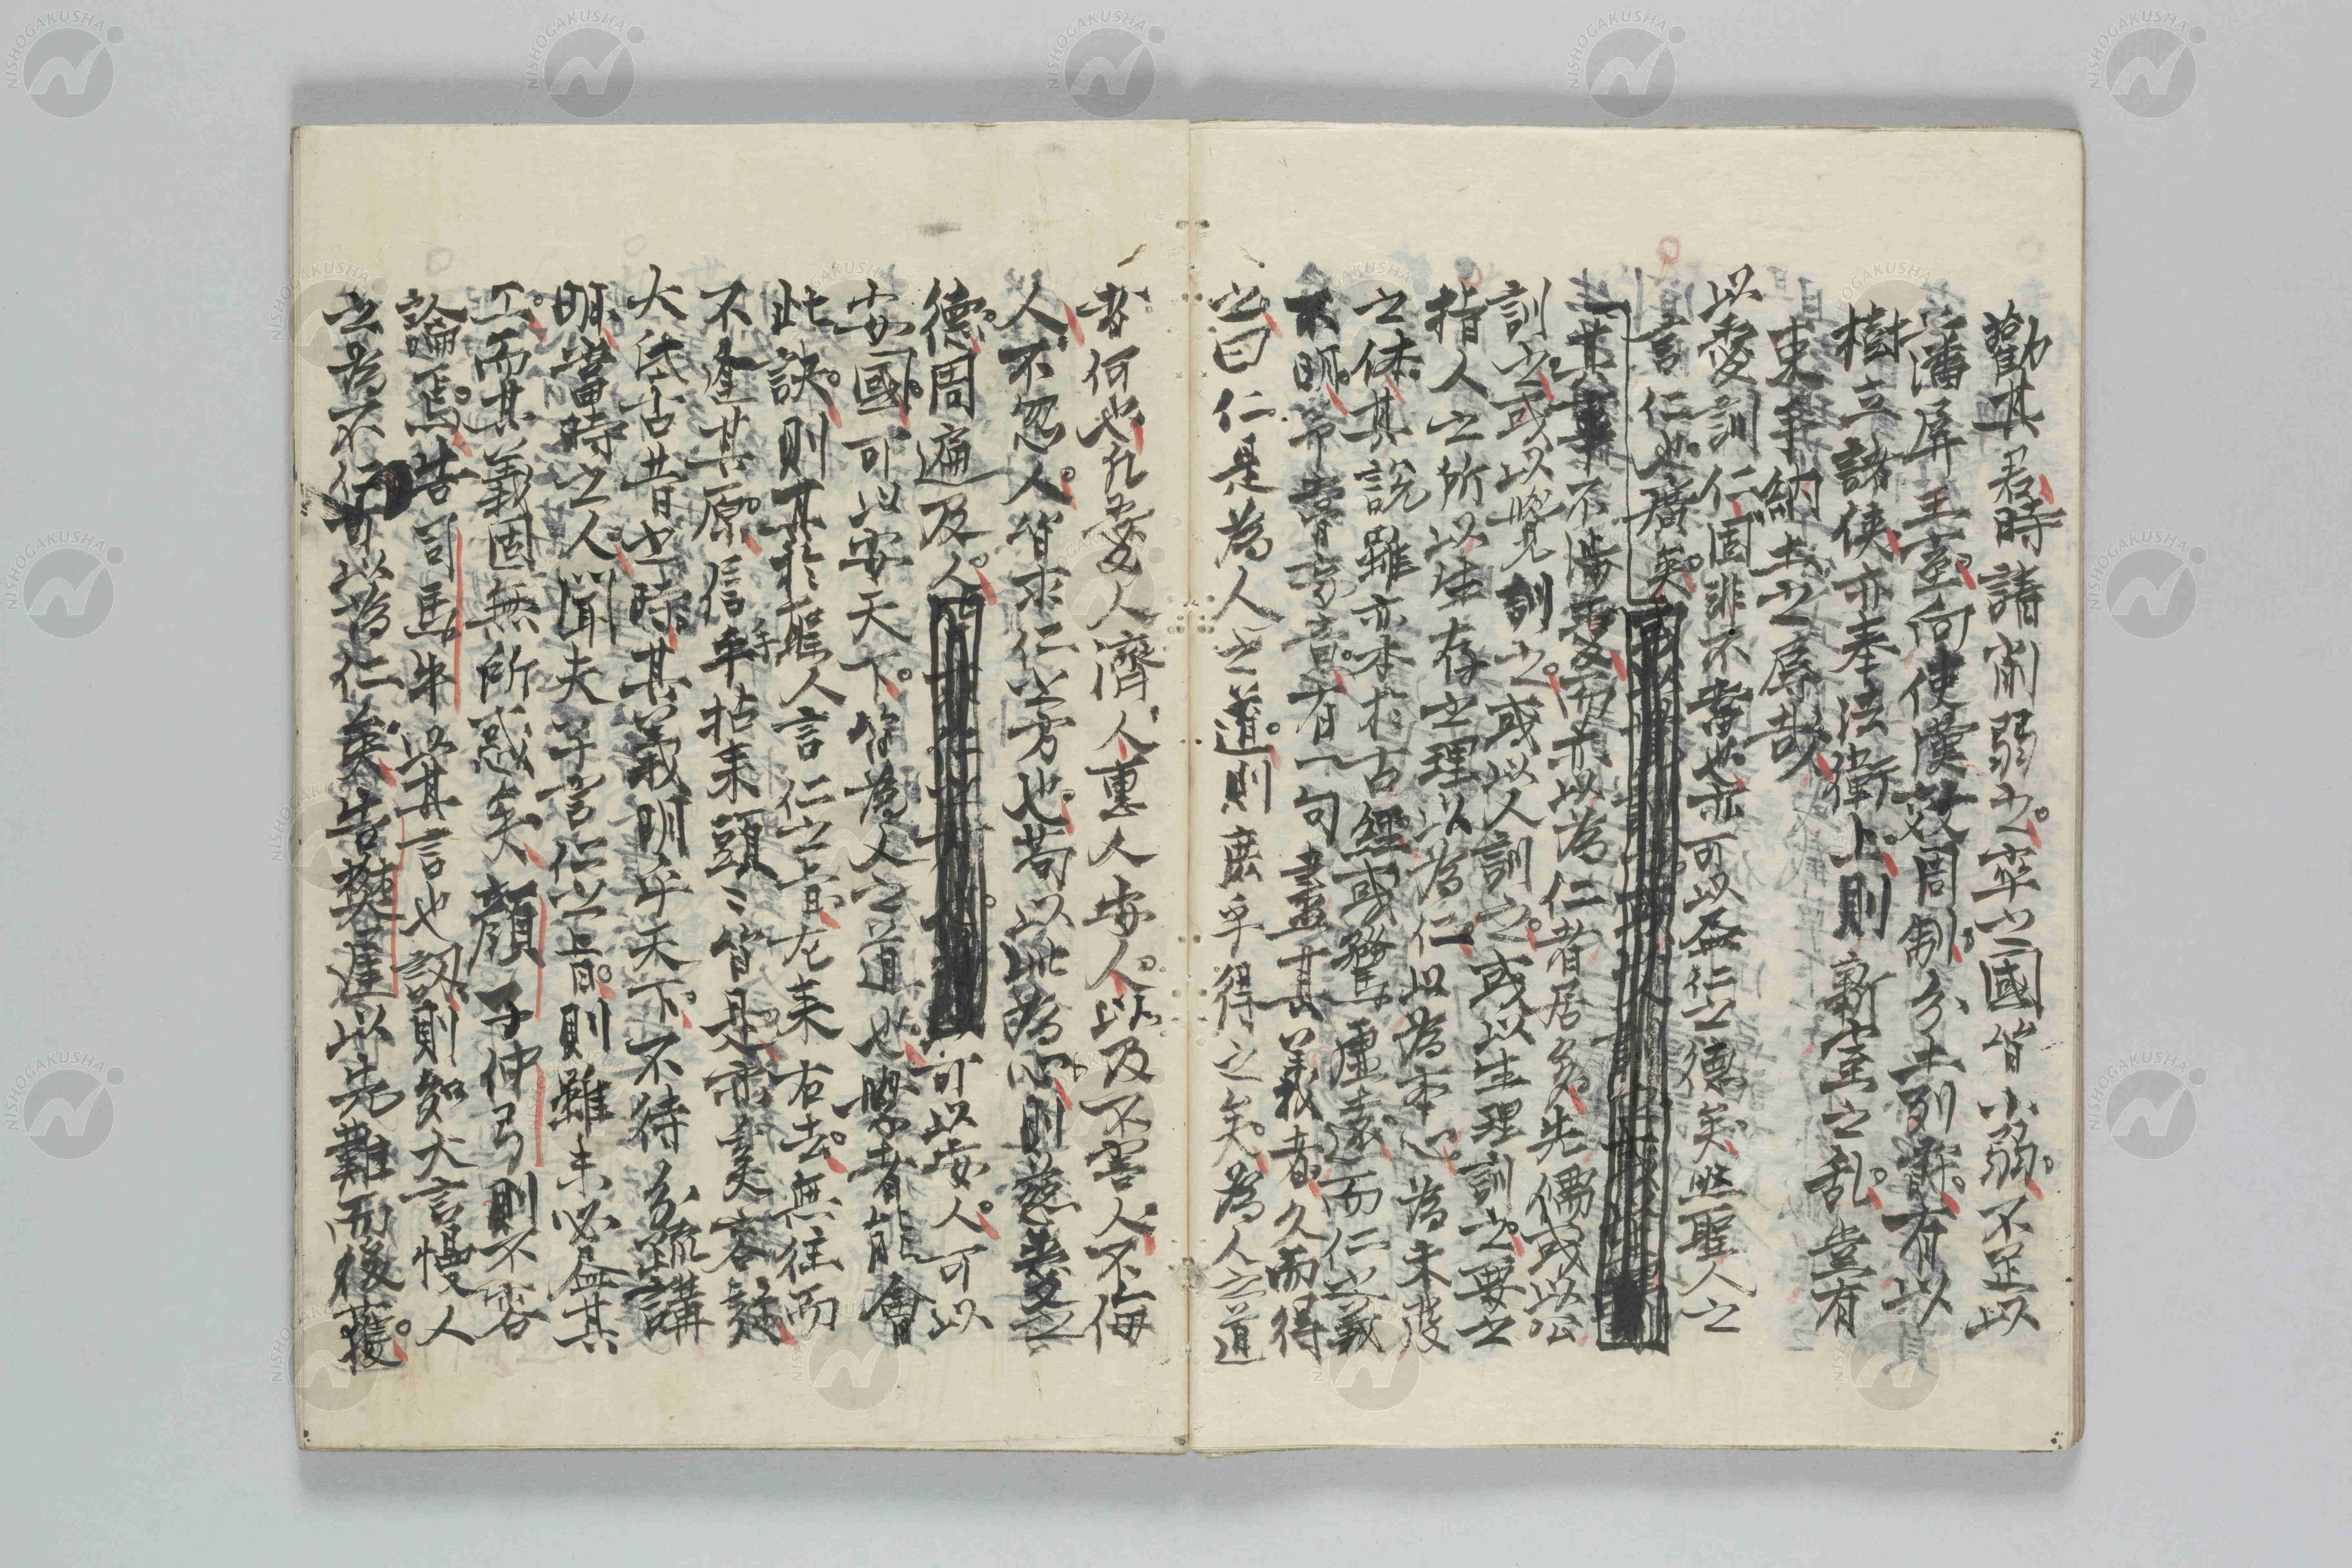 勸其君時請削弱之率之國皆小弱不足以
藩屏王室向使漢效周制分土列爵有以
樹立諸侯亦奉法衛上則新室之乱豈有
束手納土之辱哉
以愛訓仁固非不當也亦可以盡仁之德矣然聖人之
言仁也廣矣
其事不涉愛而亦以為仁者居多先儒或以公
訓之或以覺訓之或以人訓之或以生理訓之要之
指人之所以生存之理以為仁以為本心為未發
之体其說雖亦本於古經或騖虛遠而仁之義
不明予嘗有一句盡其義者久而得
之曰仁是為人之道則庶乎得之矣為人之道
者何也凡愛人濟人惠人安人以及不害人不侮
人不忽人皆求仁之方也苟以此為心則慈愛之
德周遍及人可以安人可以
安國可以安天下皆為人之道也學者能會
此訣則其於聖人言仁之旨左来右去無往而
不逢其原信手拈来頭〻皆是亦奚容疑
大氐古昔也時其義明乎天下不待分疏講
明當時之人聞夫子言仁之旨則雖未必盡其
工而其義固無所惑矣顏子仲弓則不容
論焉告司馬牛以其言也訒則知大言慢人
之為不仁可以為仁矣告樊遲以先難而後獲
NISHOGAKUSHA